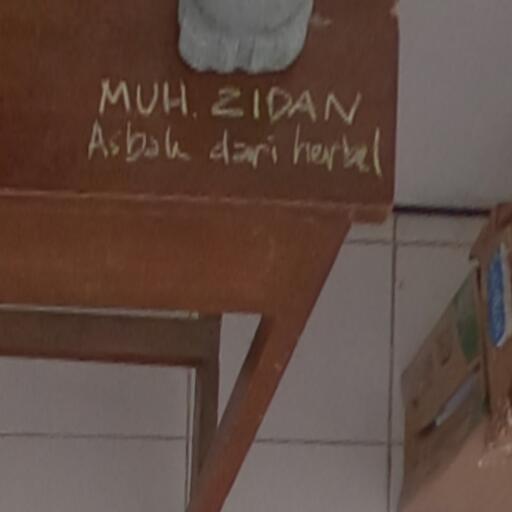 MUH. ZIDAN
Asbak dari herbel